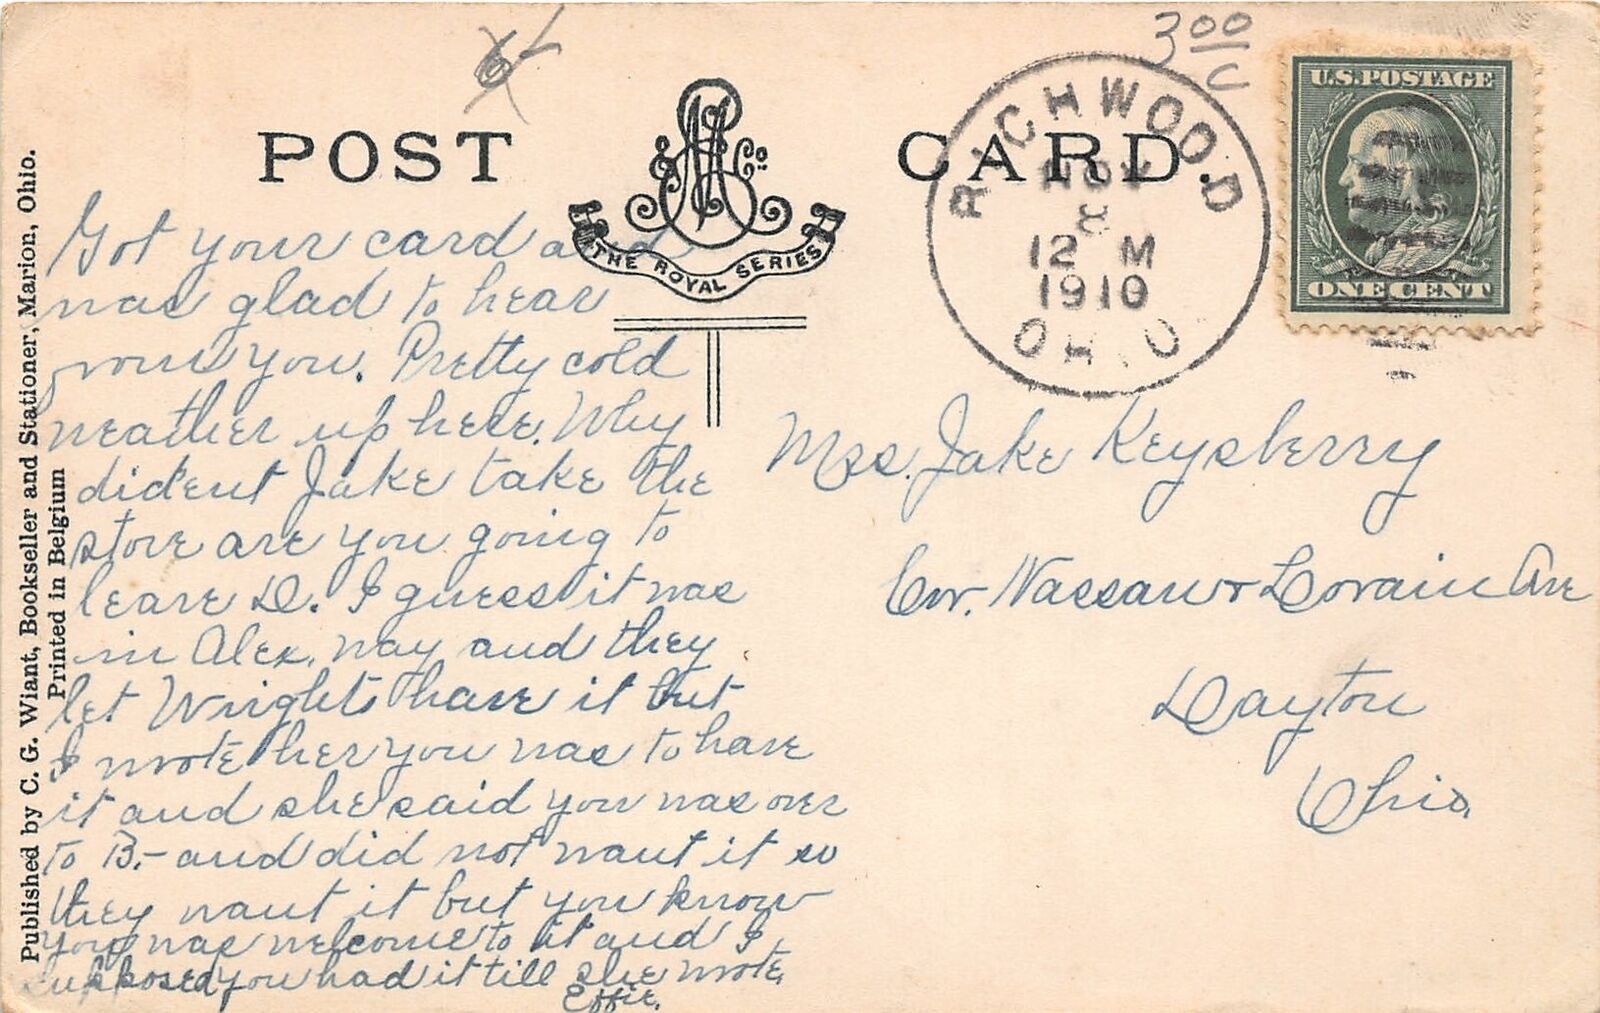 POST CARD
& Co.
THE ROYAL SERIES
RICHWOOD.
NOV
8
12 M
1910
OHIO
3 00
U.S. POSTAGE
ONE CENT
Published by C. G. Wiant, Bookseller and Stationer, Marion, Ohio.
Printed in Belgium
Got your card and
was glad to hear
from you. Pretty cold
weather up here. Why
dident Jake take the
store are you going to
leave D. I guess it was
in Alex. way and they
let Wrights have it but
I wrote her you was to have
it and she said you was over
to B.- and did not want it so
they want it but you know
you was welcome to it and I
supposed you had it till she wrote.
Effie.
Mrs. Jake Keysberry
Cor. Nassau & Lorain Ave
Dayton
Ohio.